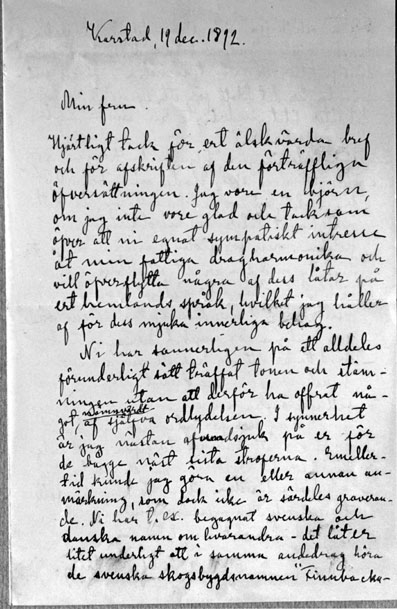 Karstad, 19 dec. 1892.
Min fru.
Hjärtligt tack för ert älskvärda bref
och för afskriften af den förträffliga
öfversättningen. Jag vore en björn,
om jag inte vore glad och tacksam
öfver att ni egnat sympatiskt intresse
åt min fattiga dragharmonika och
vill öfverflytta några af dess låtar på
ert hemlands språk, hvilket jag håller
af för dess mjuka innerliga behag.
Ni har sannerligen på ett alldeles
förunderligt sätt träffat tonen och stäm-
ningen utan att derför ha offrat nå-
got nämnvärdt af själfva ordlydelsen. I synnerhet
är jag nästan afundsjuk på er för
de bägge näst sista stroferna. Emeller-
tid kunde jag göra en eller annan an-
märkning, som dock icke är särdeles graveran-
de. Ni har t. ex. begagnat svenska och
danska namn om hvarandra - det låter
litet underligt att i samma andedrag höra
de svenska skogsbygdsnamnen "Finnbacks-